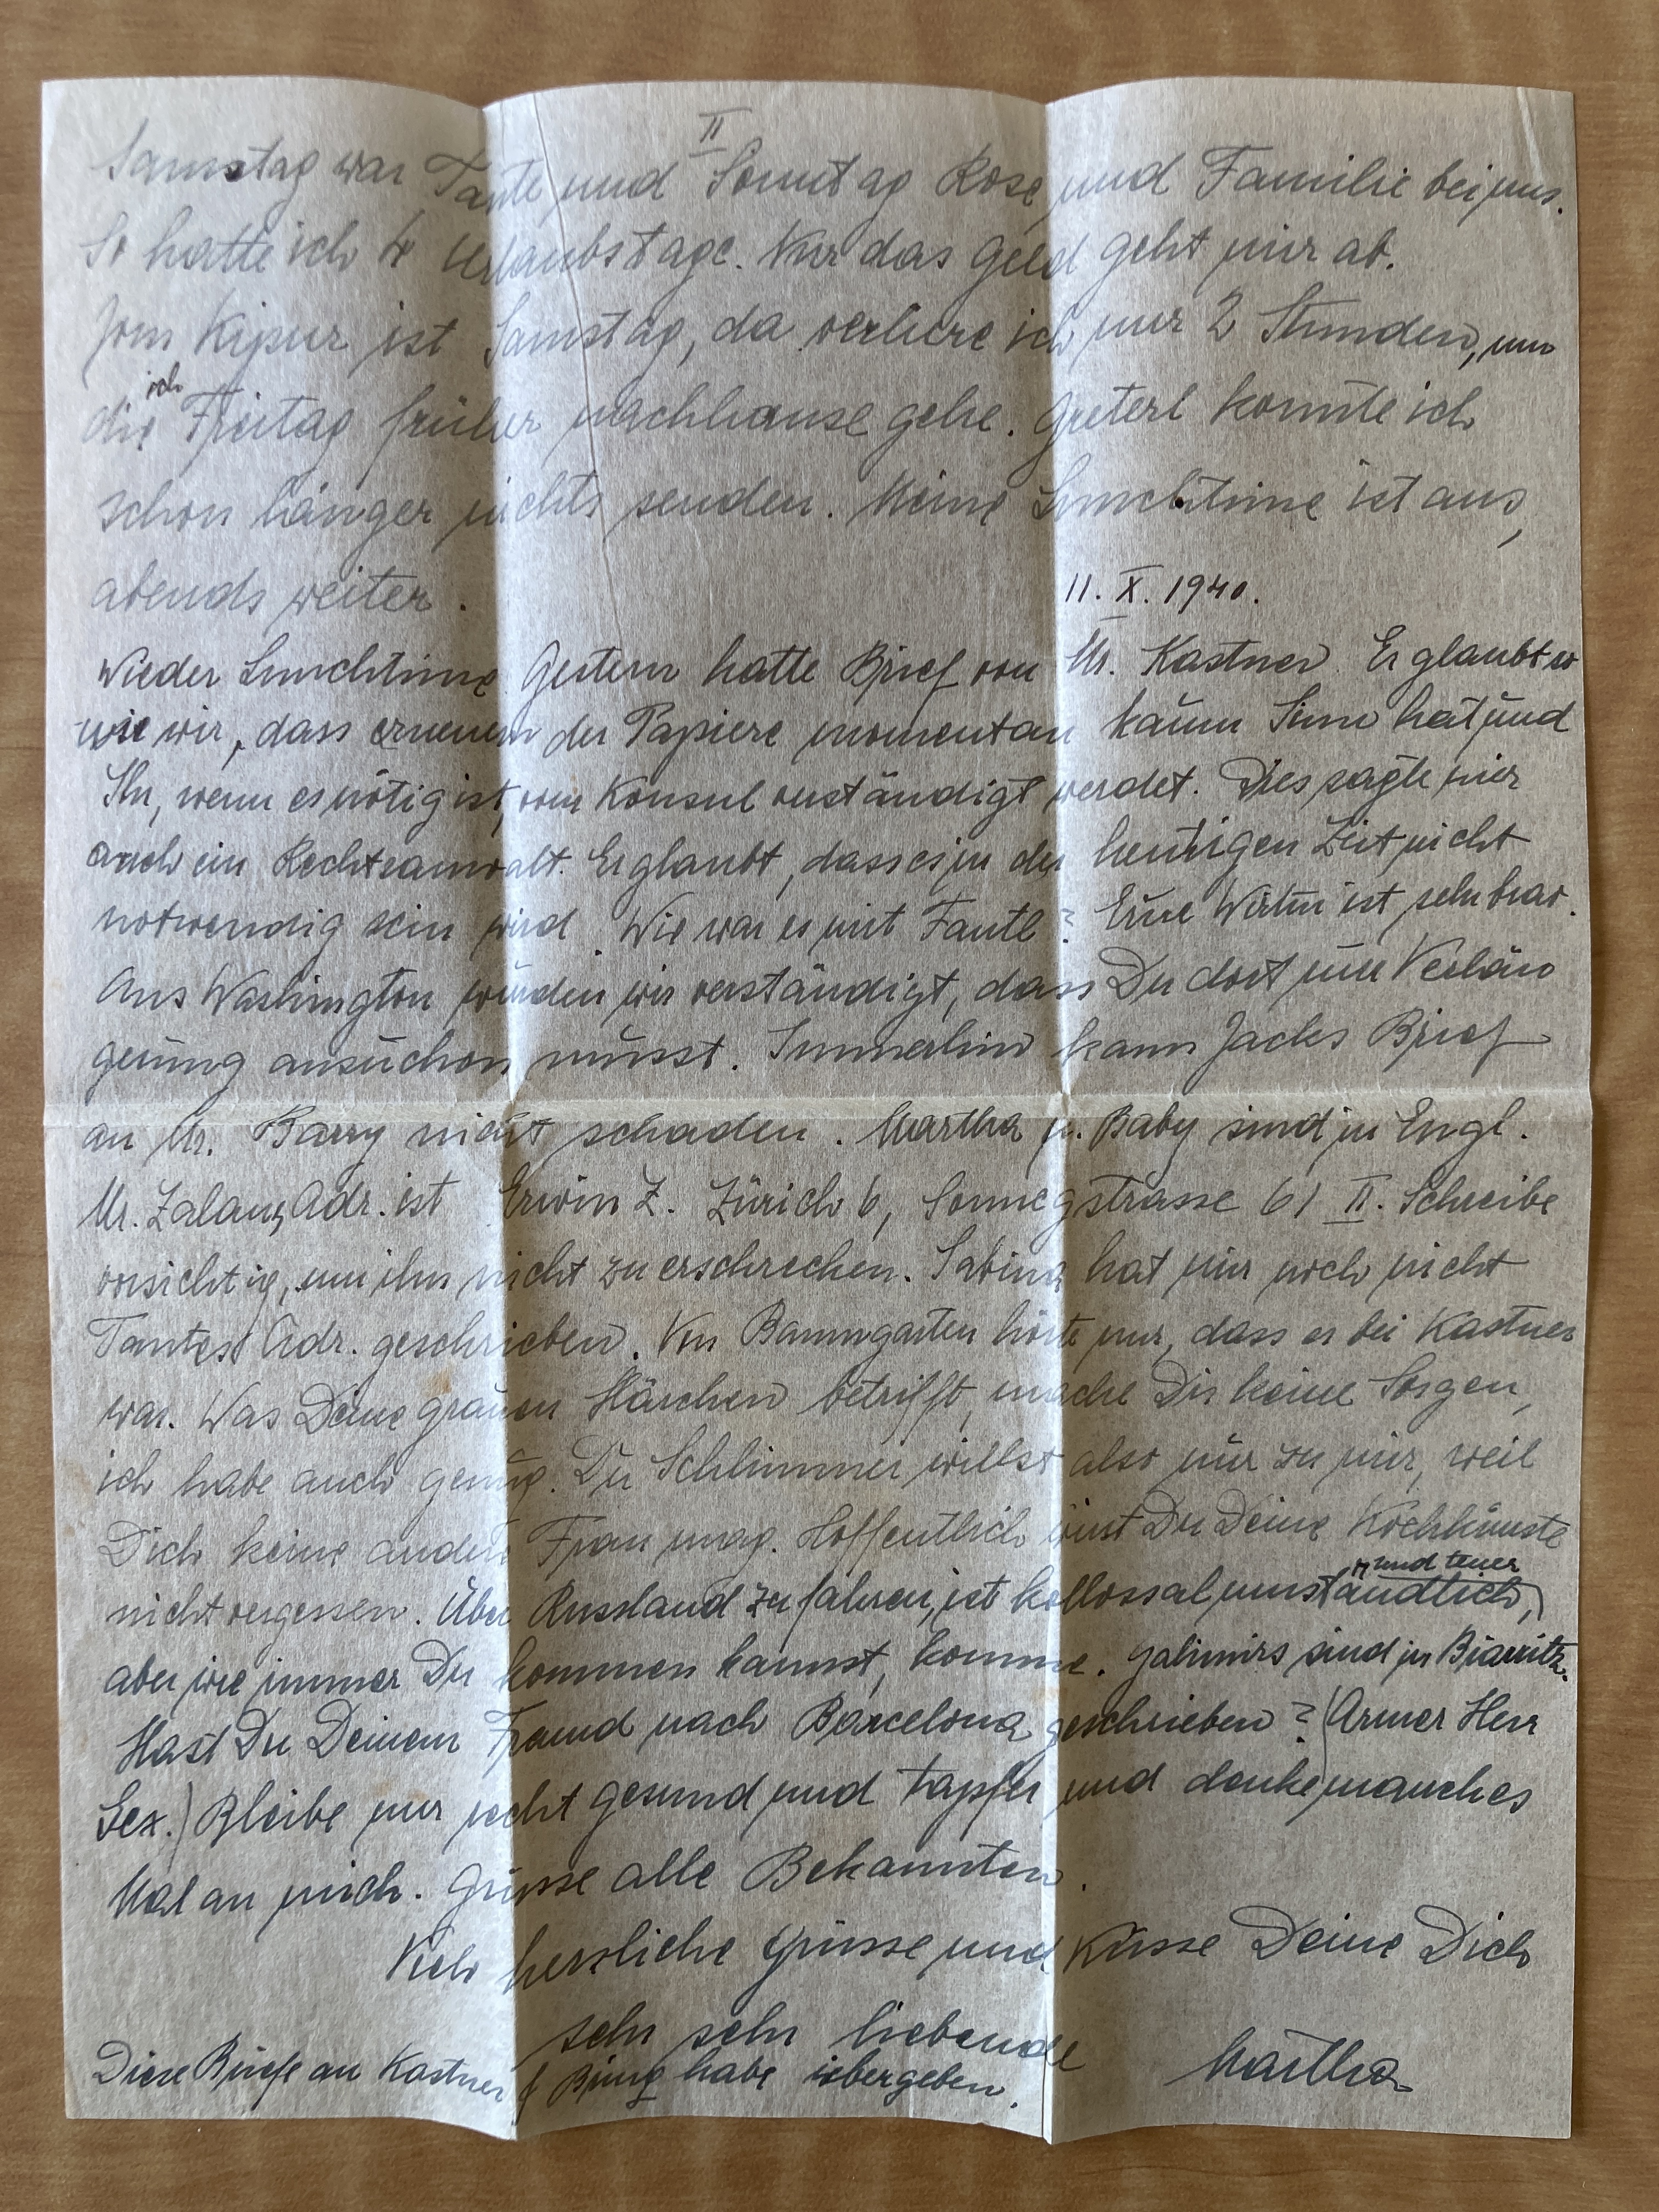 II
Samstag war Tante und Sonntag Rose und Familie bei uns.
So hatte ich 4 Urlaubstage. Nur das Geld geht mir ab.
Jom Kipur ist Samstag, da verliere ich nur 2 Stunden, um
die ich Freitag früher nachhause gehe. Greterl konnte ich
schon länger nichts senden. Meine Lunchtime ist aus,
abends weiter.
11. X. 1940.
Wieder Lunchtime. Gestern hatte Brief von Mr. Kastner. Er glaubt so
wie wir, dass erneuern der Papiere momentan kaum Sinn hat und
Ihr, wenn es nötig ist, vom Konsul verständigt werdet. Dies sagte mir
auch ein Rechtsanwalt. Er glaubt, dass es in der heutigen Zeit nicht
notwendig sein wird. Wie war es mit Fantl? Eure Wirtin ist sehr brav.
Aus Washington wurden wir verständigt, dass Du dort um Verlän
gerung ansuchen musst. Immerhin kann Jacks Brief
an Mr. Barry nicht schaden. Martha u. Baby sind in Engl.
Mr. Zalans Adr. ist Erwin Z. Zürich 6, Sonnegstrasse 61 II. Schreibe
vorsichtig, um ihn nicht zu erschrecken. Sabina hat mir noch nicht
Tantes Adr. geschrieben. Von Baumgarten hörte nur, dass er bei Kastner
war. Was Deine grauen Härchen betrifft, mache Dir keine Sorgen,
ich habe auch genug. Du Schlimmer willst also nur zu mir, weil
Dich keine andere Frau mag. Hoffentlich wirst Du Deine Kochkünste
nicht vergessen. Über Russland zu fahren, ist kollossal umständlich, und teuer
aber wie immer Du kommen kannst, komme. Galimirs sind in Biarritz.
Hast Du Deinem Freund nach Barcelona geschrieben? (Armer Herr
Lex.) Bleibe nur recht gesund und tapfer und denke manches
Mal an mich. Grüsse alle Bekannten.
Viele herzliche Grüsse und Küsse Deine Dich
sehr sehr liebende
Martha
Diese Briefe an Kastner & Bing habe übergeben.